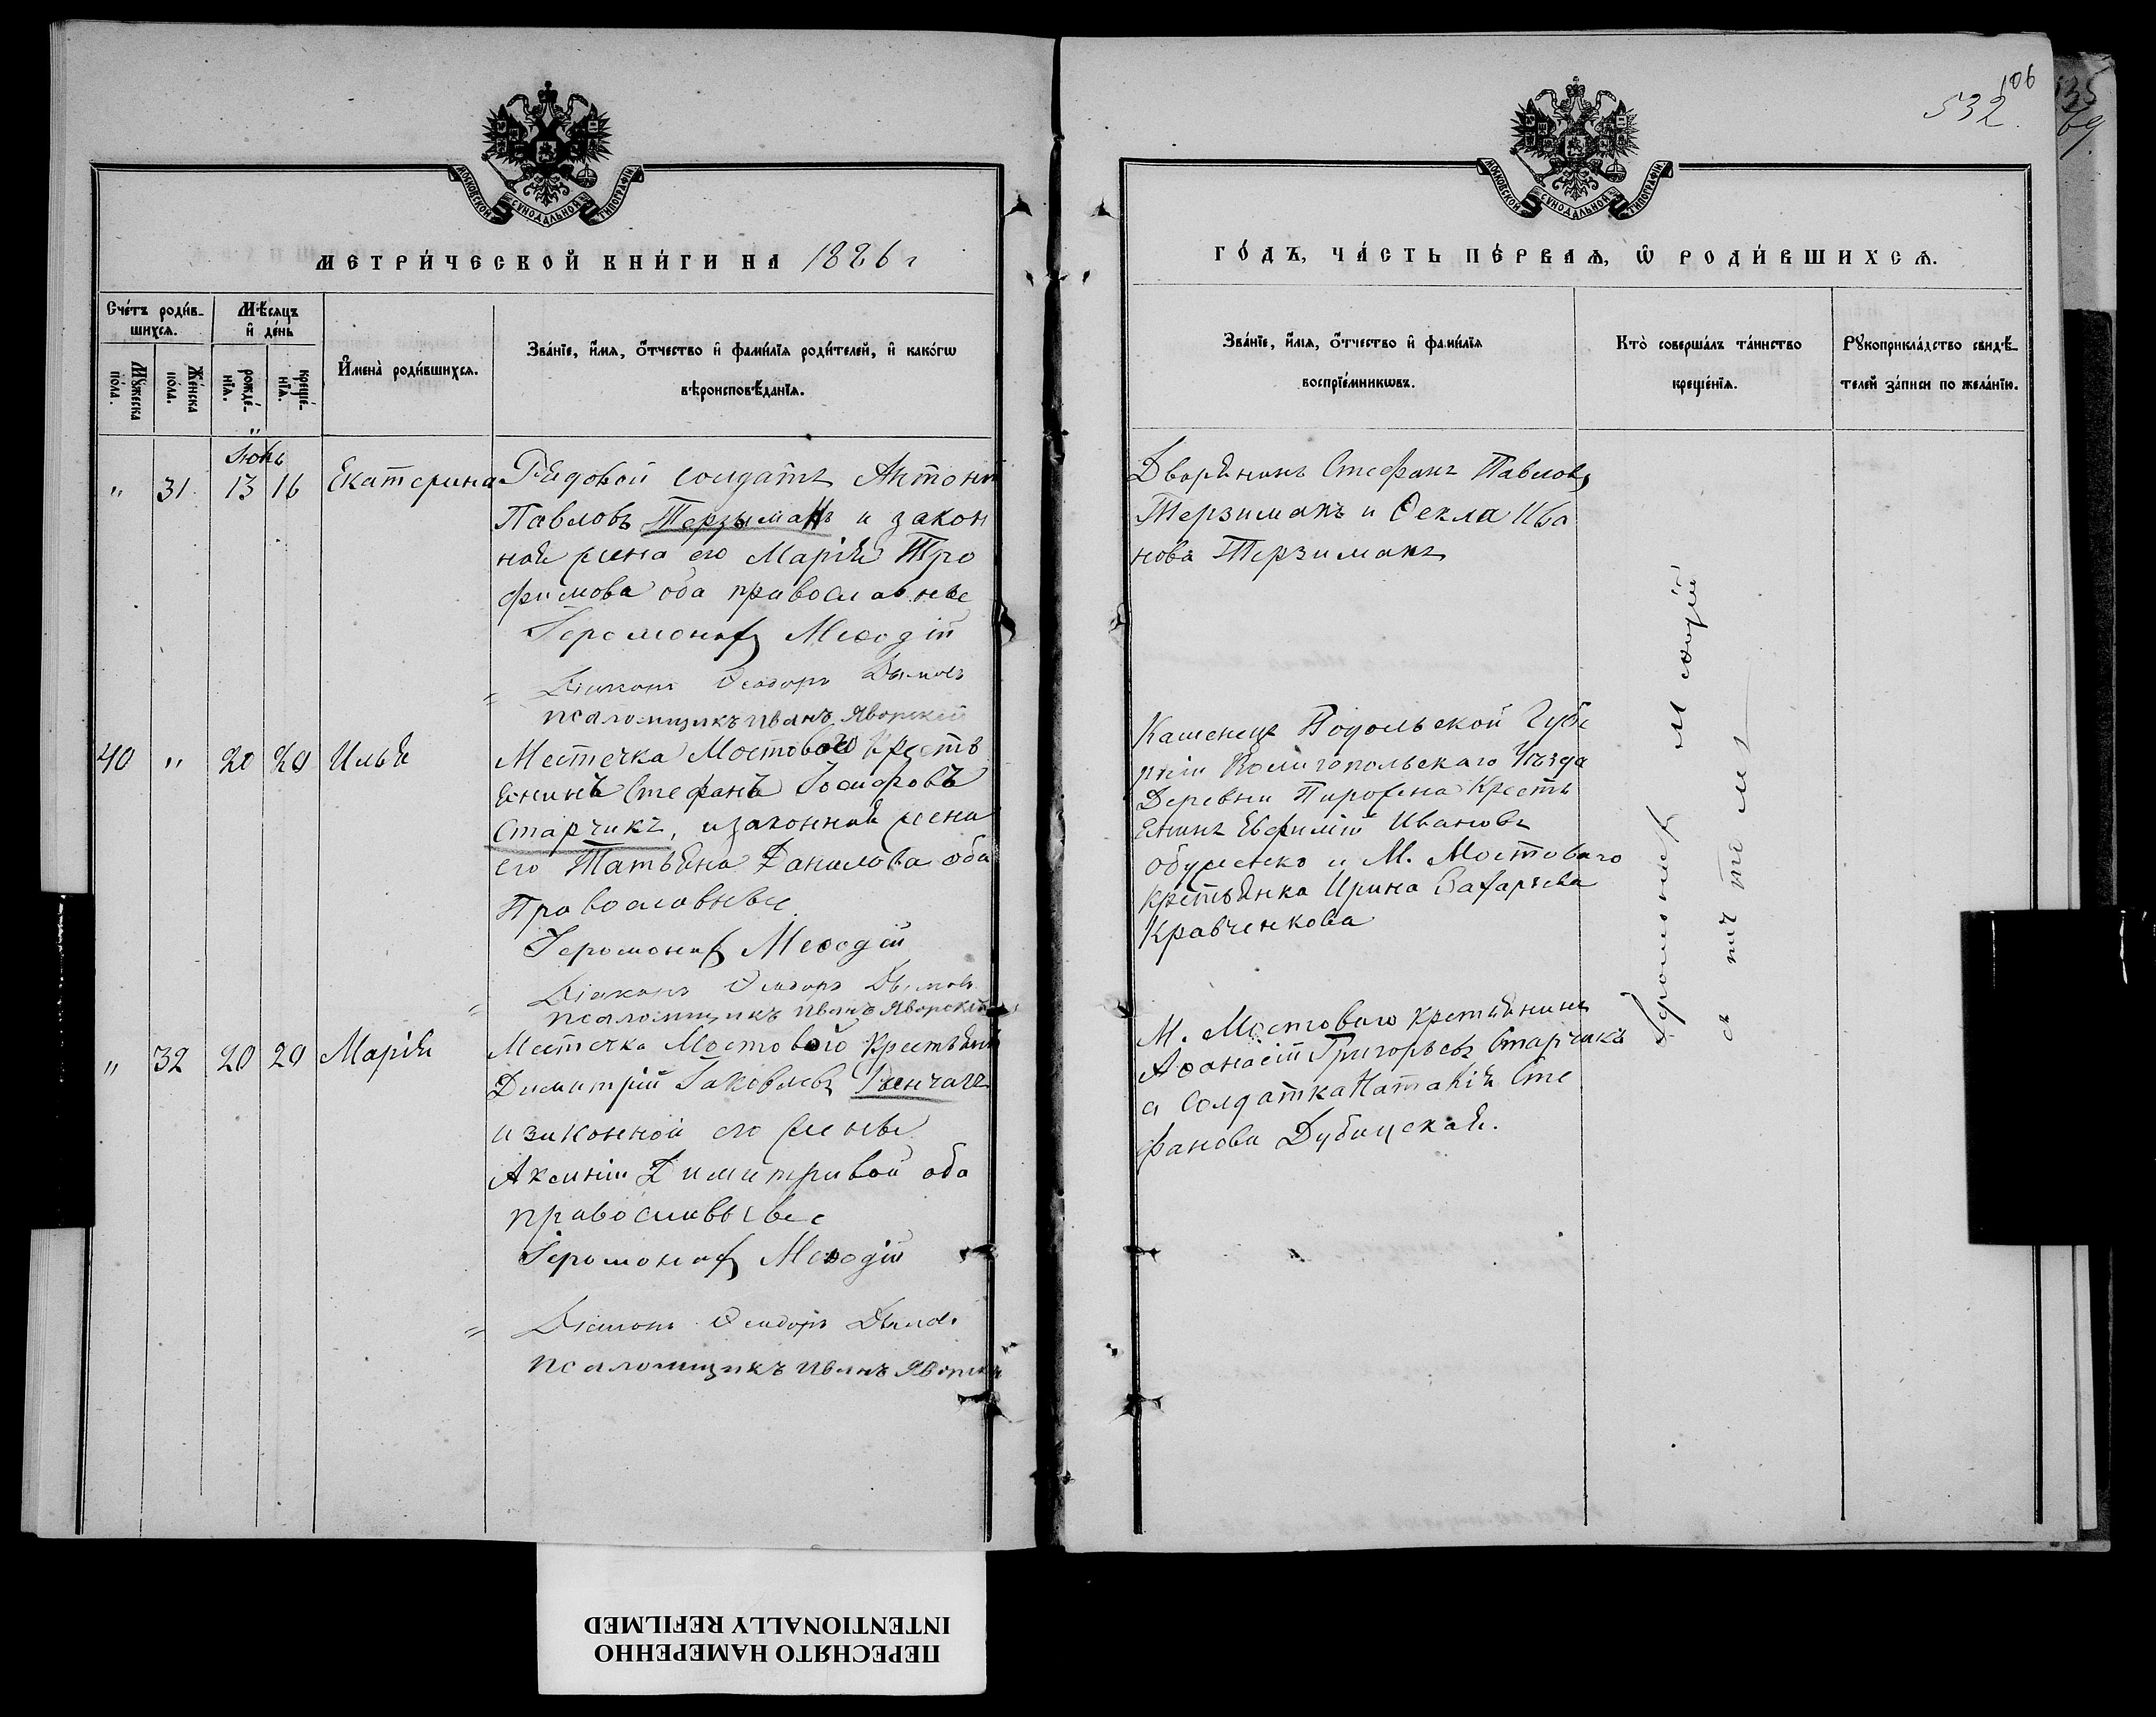 106
532.
135
69
МОСКОВСКОЙ СѴНОДАЛЬНОЙ ТИПОГРАФІИ
МЕТРИ́ЧЕСКОЙ КНИ́ГИ НА 1886 г
Сче́тъ роди́в-
шихся.
Мѣ́сяцъ
и҆ де́нь
Мꙋ́жеска
по́ла.
Же́нска
по́ла.
рожде́-
нїѧ.
креще́-
нїѧ.
И҆мена̀ роди́вшихся.
Зва́нїе, и҆́мѧ, ѻ҆́тчество и҆ фами́лїѧ роди́телей, и҆ како́гѡ
вѣроисповѣ́данїѧ.
Іюнь
" 31. 13 16 Екатерина Рядовой солдатъ Антоній
Павловъ Терзыманъ и закон
ная жена его Марія Тро
фимова оба православные
Іеромонах Меѳодій
Діаконъ Ѳеодоръ Дымовъ
псаломщикъ Иванъ Яворскій
40 " 20 20 Илья Местечка Мостового Кресть
янинъ Стефанъ
Старчикъ, и законная жена
его Татьяна Данилова оба
Православные.
Іеромонах Меѳодій
Діаконъ Ѳеодоръ Дымовъ
псаломщикъ Иванъ Яворскій
" 32 20 20 Марія Местечка Мостового Крестьянинъ
Димитрій Іаковлевъ
и законной его жены
Аксиніи Димитривой оба
православные
Іеромонах Меѳодій
Діаконъ Ѳеодоръ Дымовъ
псаломщикъ Иванъ Яворскій
МОСКОВСКОЙ СѴНОДАЛЬНОЙ ТИПОГРАФІИ
ГО́ДЪ, ЧА́СТЬ ПЕ́РВАѦ, Ѡ҆ РОДИ́ВШИХСѦ.
Зва́нїе, и҆́мѧ, ѻ҆́тчество и҆ фами́лїѧ
воспрїе́мникѡвъ.
Кто̀ соверша́лъ та́инство
креще́нїѧ.
Рꙋкоприкла́дство свидѣ́-
телей за́писи по жела́нїю.
Дворянинъ Стефанъ Павловъ
Терзиманъ и Ѳекла Ива
нова Терзиманъ
Каменецъ Подольской Губе
рніи Уѣзда
Деревни Кресть
янинъ Евфимій Ивановъ
и М. Мостового
крестьянка Ирина Захарьева
Кравченкова
М. Мостового крестьянинъ
Аѳанасій Григорьевъ Старчикъ
и Солдатка Наталія Сте
фанова Дубицская.
Іеромонах Меѳодій
съ
ПЕРЕСНЯТО НАМЕРЕННО
INTENTIONALLY REFILMED